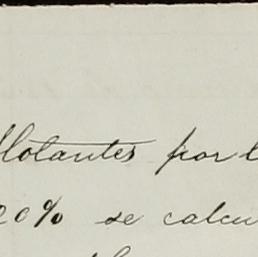 flotantes por l
20% se calcu